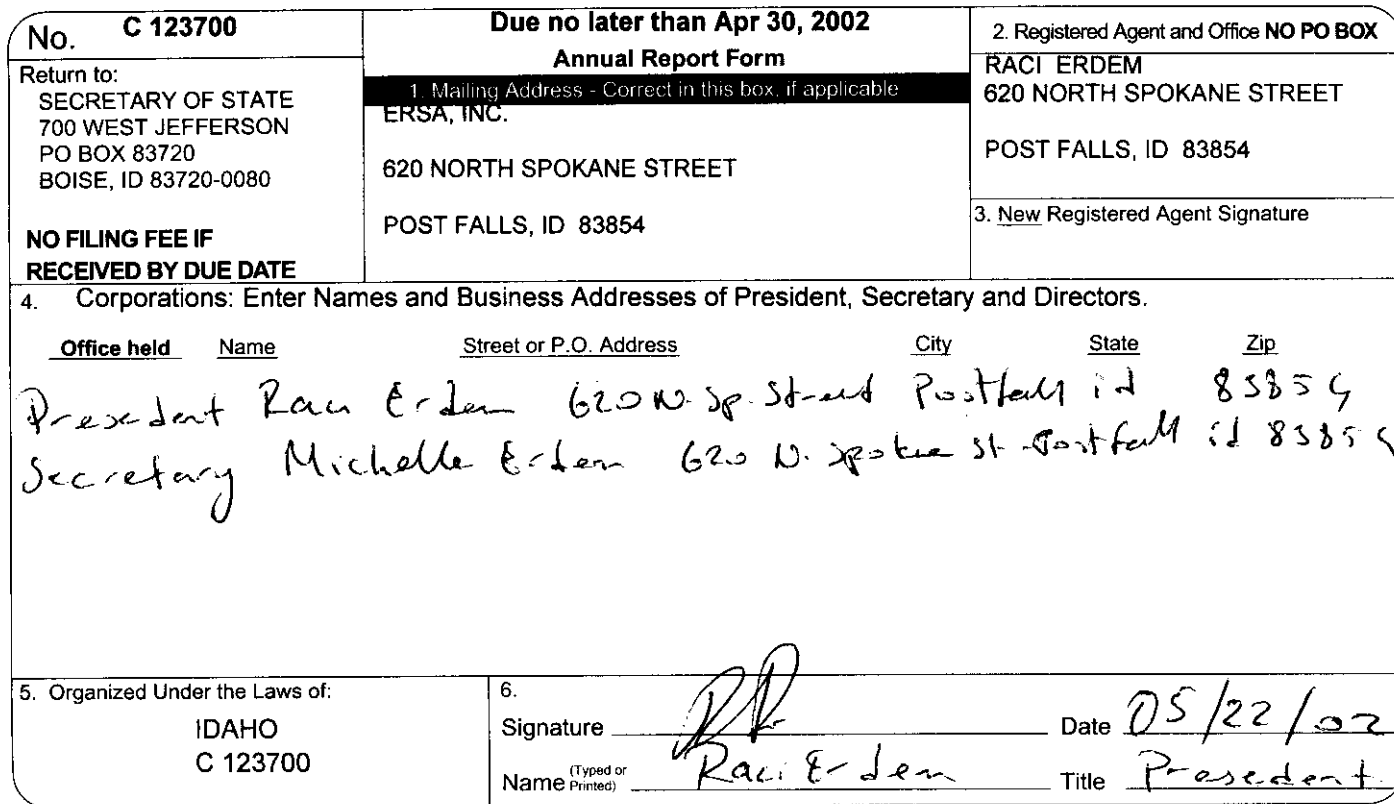 No. C 123700
Return to:
SECRETARY OF STATE
700 WEST JEFFERSON
PO BOX 83720
BOISE, ID 83720-0080
NO FILING FEE IF
RECEIVED BY DUE DATE
Due no later than Apr 30, 2002
Annual Report Form
1. Mailing Address - Correct in this box, if applicable
ERSA, INC.
620 NORTH SPOKANE STREET
POST FALLS, ID 83854
2. Registered Agent and Office NO PO BOX
RACI ERDEM
620 NORTH SPOKANE STREET
POST FALLS, ID 83854
3. New Registered Agent Signature
4. Corporations: Enter Names and Business Addresses of President, Secretary and Directors.
Office held Name Street or P.O. Address City State Zip
Presedent Raci Erdem 620 N. Sp. Street Postfall id 83854
Secretary Michelle Erdem 620 N. Spokne st. Postfall id 83854
5. Organized Under the Laws of:
IDAHO
C 123700
6.
Signature Date 05/22/02
Name (Typed or Printed) Raci Erdem Title Presedent